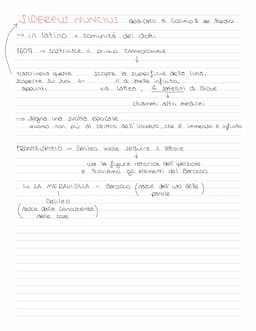 SIDEREUS NUNCIUS dedicato a Cosimo II de Medici
→ in latino → comunità dei dotti
1609 → costruisce il primo cannocchiale
trascriveva queste scopre la superficie della luna,
scoperte su suoi ← n° di stelle infinito,
appunti via lattea, 4 satelliti di Giove
chiamati astri medicei
→ segna una svolta epocale
uomo non più al centro dell'universo, che è immenso e infinito
FRONTESPIZIO → Galileo vuole sedurre il lettore
usa la figura retorica dell'iperbole
e troviamo gli elementi del Barocco
↳ LA MERAVIGLIA - Barocco (nasce dall'uso delle)
parole
Galileo
(nasce dalla conoscenza)
delle cose